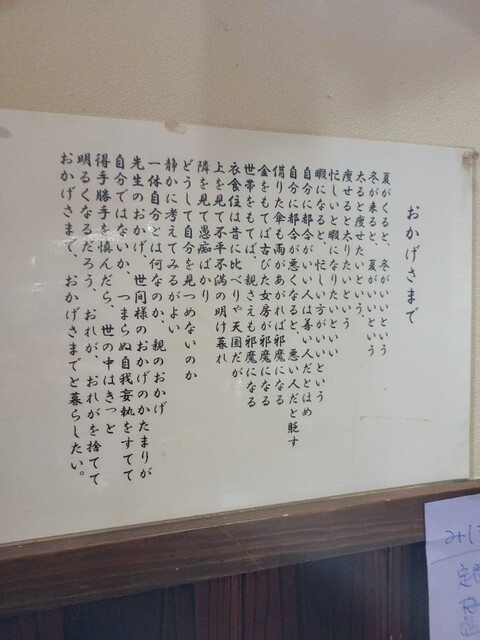 おかげさまで
夏がくると、冬がいいという
冬が来ると、夏がいいという
太ると痩せたいという、
痩せると太りたいという
忙しいと暇になりたいといい
暇になると、忙しい方がいいという
自分に都合がいい人は善い人だとほめ
自分に都合が悪くなると、悪い人だと貶す
借りた傘も雨があがれば邪魔になる
金をもてば古びた女房が邪魔になる
世帯をもてば、親さえも邪魔になる
衣食住は昔に比べりゃ天国だが
上を見て不平不満の明け暮れ
隣を見て愚痴ばかり
どうして自分を見つめないのか
静かに考えてみるがよい
一体自分とは何なのか、親のおかげ
先生のおかげ、世間様のおかげのかたまりが
自分ではないか、つまらぬ自我妄執をすてて
得手勝手を慎んだら、世の中はきっと
明るくなるだろう、おれが、おれがを捨てて
おかげさまで、おかげさまでと暮らしたい。